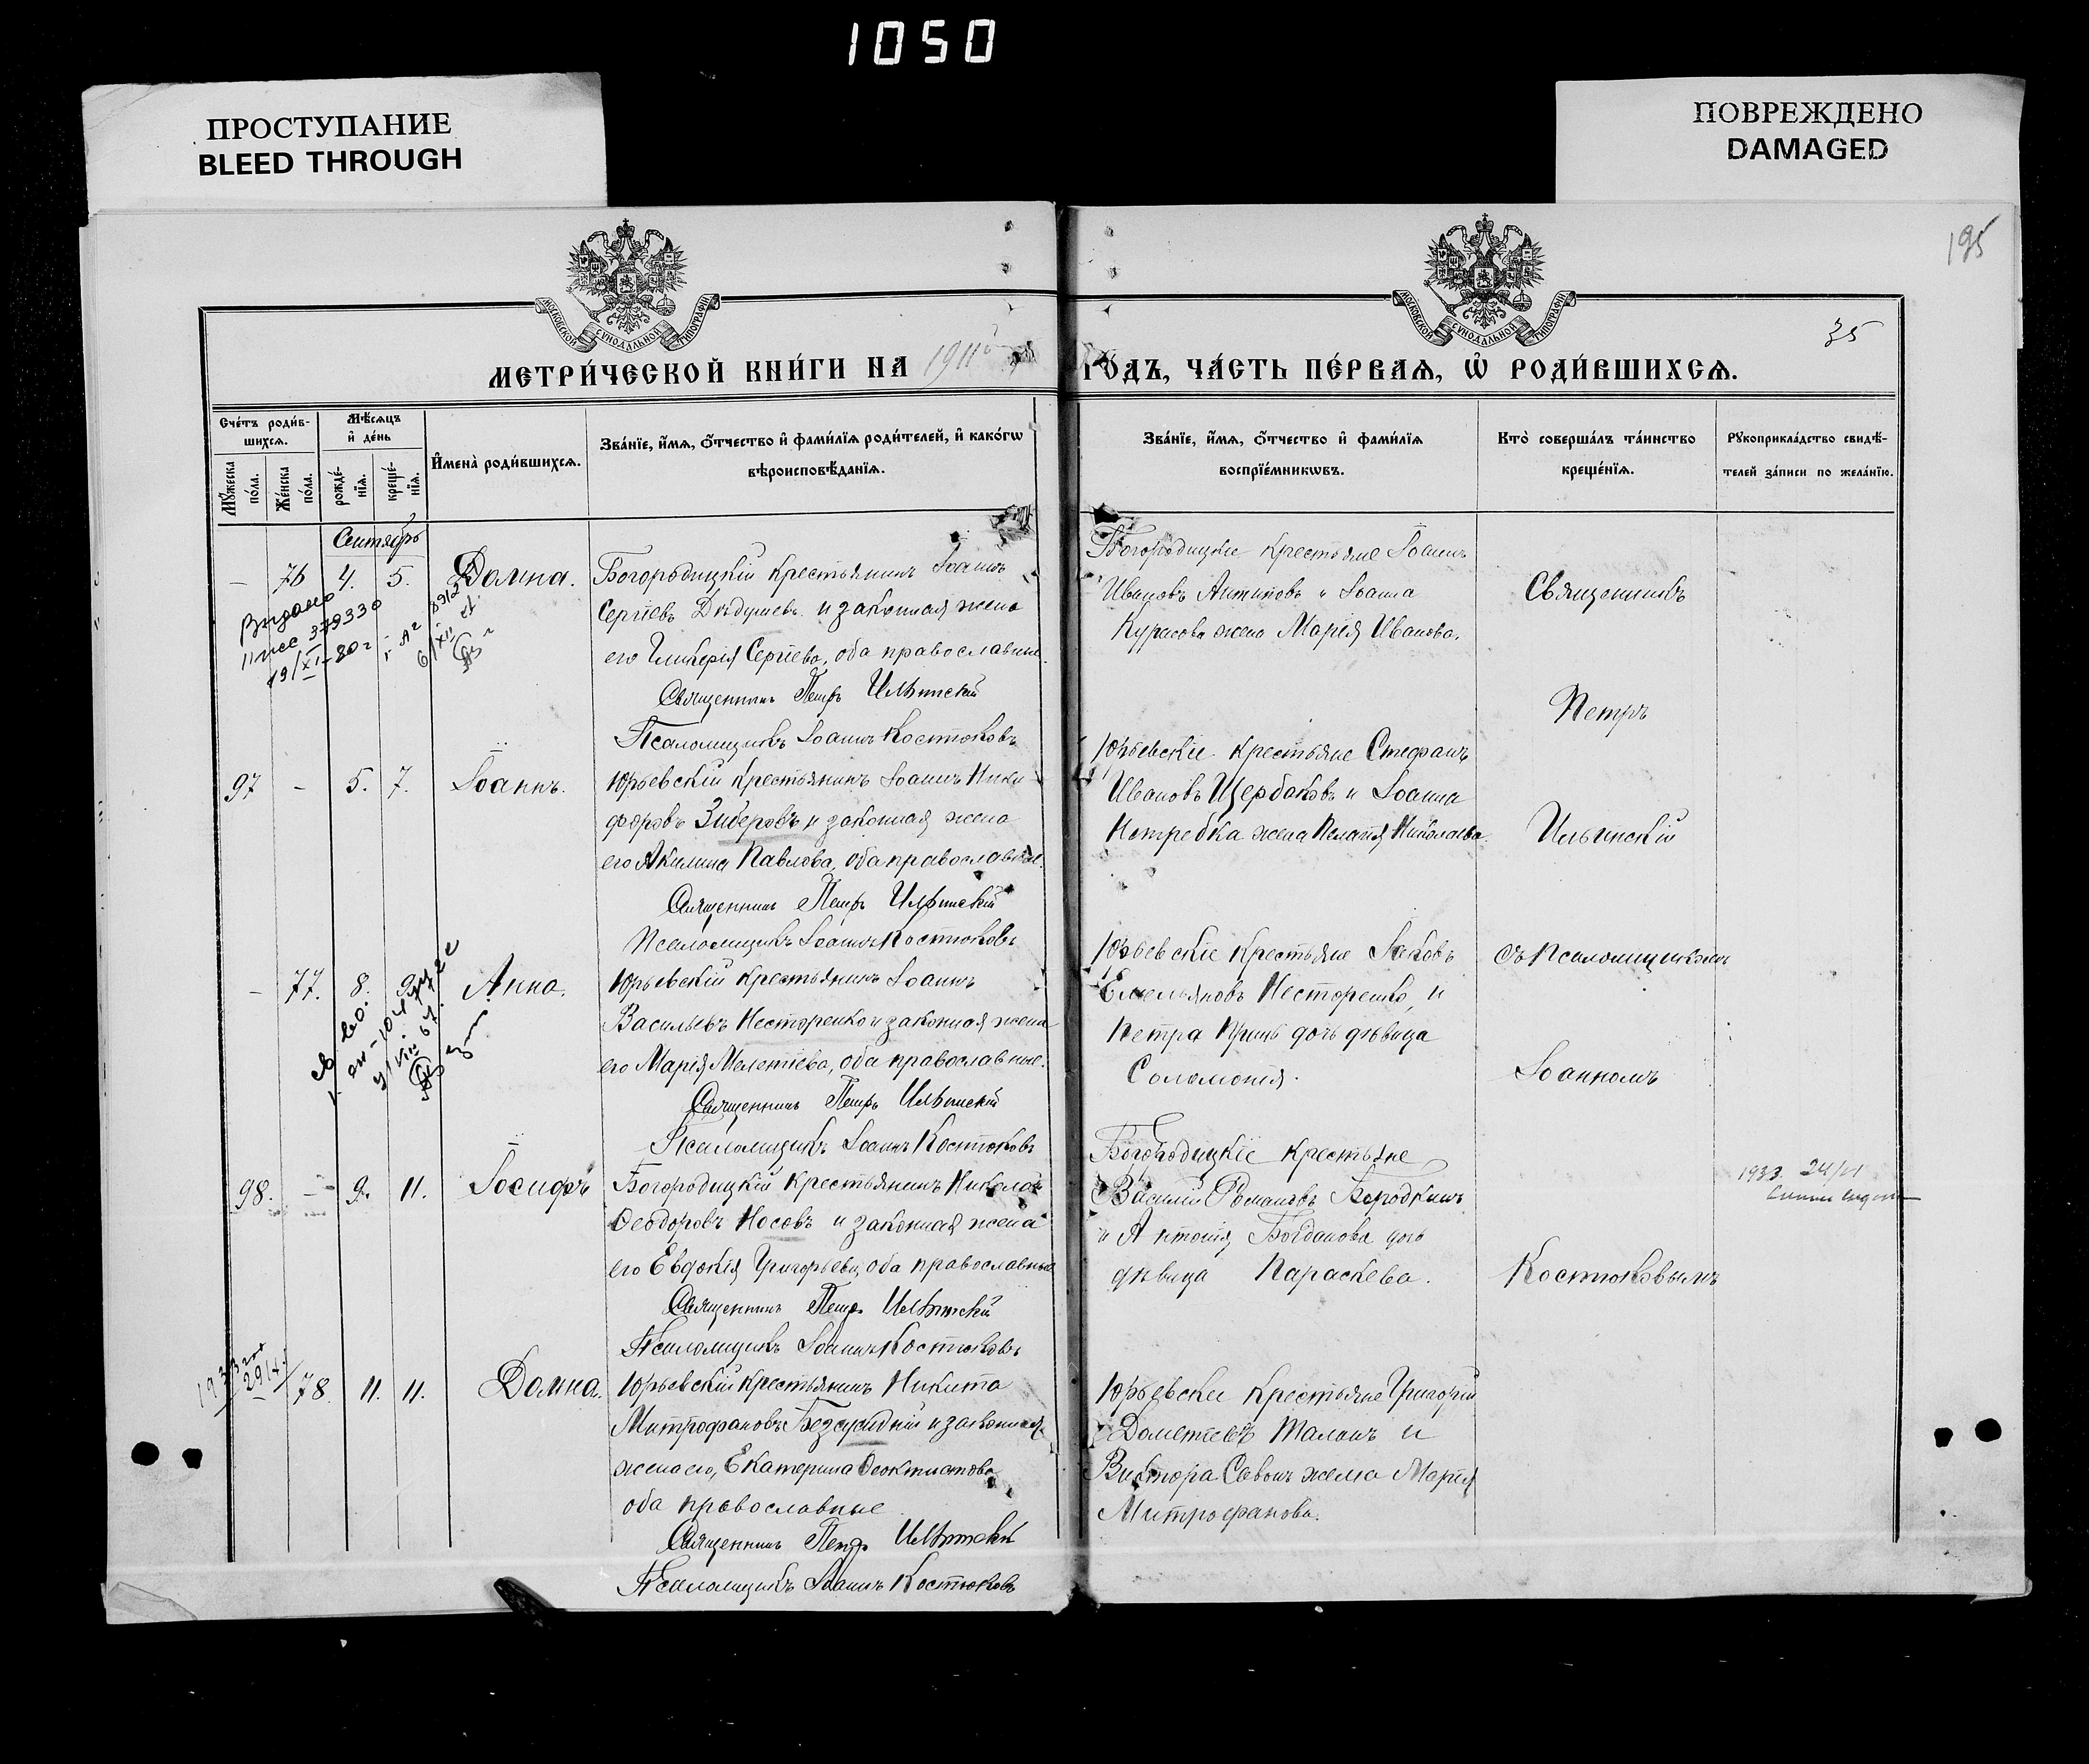 1050
ПРОСТУПАНИЕ
BLEED THROUGH
ПОВРЕЖДЕНО
DAMAGED
195
МОСКОВСКОЙ СУНОДАЛЬНОЙ ТИПОГРАФІИ
МОСКОВСКОЙ СУНОДАЛЬНОЙ ТИПОГРАФІИ
35
МЕТРИ́ЧЕСКОЙ КНИ́ГИ НА 1911й
ГО́ДЪ, ЧА́СТЬ ПЕ́РВАѦ, Ѡ҆ РОДИ́ВШИХСѦ.
Сче́тъ роди́в-
шихсѧ.
Мꙋ́жеска
по́ла.
Же́нска
по́ла.
Мѣ́сѧцъ
и҆ де́нь
рожде́-
нїѧ.
креще́-
нїѧ.
И҆мена̀ роди́вшихсѧ.
Зва́нїе, и҆́мѧ, ѻ҆́тчество и҆ фами́лїѧ роди́телей, и҆ како́гѡ
вѣроисповѣ́данїѧ.
Зва́нїе, и҆́мѧ, ѻ҆́тчество и҆ фами́лїѧ
воспрїе́мникѡвъ.
Кто̀ соверша́лъ та́инство
креще́нїѧ.
Рꙋкоприкла́дство свидѣ́-
телей за́писи по жела́нїю.
Сентябрь
– 76 4. 5. Домна.
Богородицкій крестьянинъ Іоаннъ
Сергіевъ Дѣдушевъ и законная жена
его Гликерія Сергіева, оба православные.
Священникъ Петръ Ильинскій
Псаломщикъ Іоаннъ Костюковъ
Богородицкіе крестьяне Іоаннъ
Ивановъ Антиповъ и Іоанна
Курасова жена Марія Иванова.
Выдано
379330
19/XI-80г
6/XII
97 – 5. 7. Іоаннъ.
Юрьевскій крестьянинъ Іоаннъ Ники-
форовъ Зиберовъ и законная жена
его Акилина Павлова, оба православные.
Священникъ Петръ Ильинскій
Псаломщикъ Іоаннъ Костюковъ
Юрьевскіе крестьяне Стефанъ
Ивановъ Щербаковъ и Іоанна
Нетребка жена Пелагія Николаева.
– 77. 8. 9. Анна.
Юрьевскій крестьянинъ Іоаннъ
Васильевъ Несторенко и законная жена
его Марія Мелетіева, оба православные.
Священникъ Петръ Ильинскій
Псаломщикъ Іоаннъ Костюковъ
Юрьевскіе крестьяне Іаковъ
Емельяновъ Несторенко, и
Петра дочь дѣвица
Соломонія.
98. – 9. 11. Іосифъ
Богородицкій крестьянинъ Николай
Ѳеодоровъ Носовъ и законная жена
его Евдокія Григорьева, оба православные
Священникъ Петръ Ильинскій
Псаломщикъ Іоаннъ Костюковъ
Богородицкіе крестьяне
Василій Романовъ Бородкинъ
и Антонія Богданова дочь
дѣвица Параскева.
1933 24/VI
– 78. 11. 11. Домна.
Юрьевскій крестьянинъ Никита
Митрофановъ Безсуидній и законная
жена его, Екатерина Ѳеоктистова
оба православные
Священникъ Петръ Ильинскій
Псаломщикъ Іоаннъ Костюковъ
Юрьевскіе крестьяне Григорій
Дометіевъ Таланъ и
Виктора Савонъ жена Марія
Митрофанова.
Священникъ
Петръ
Ильинскій
съ Псаломщикомъ
Іоанномъ
Костюковымъ